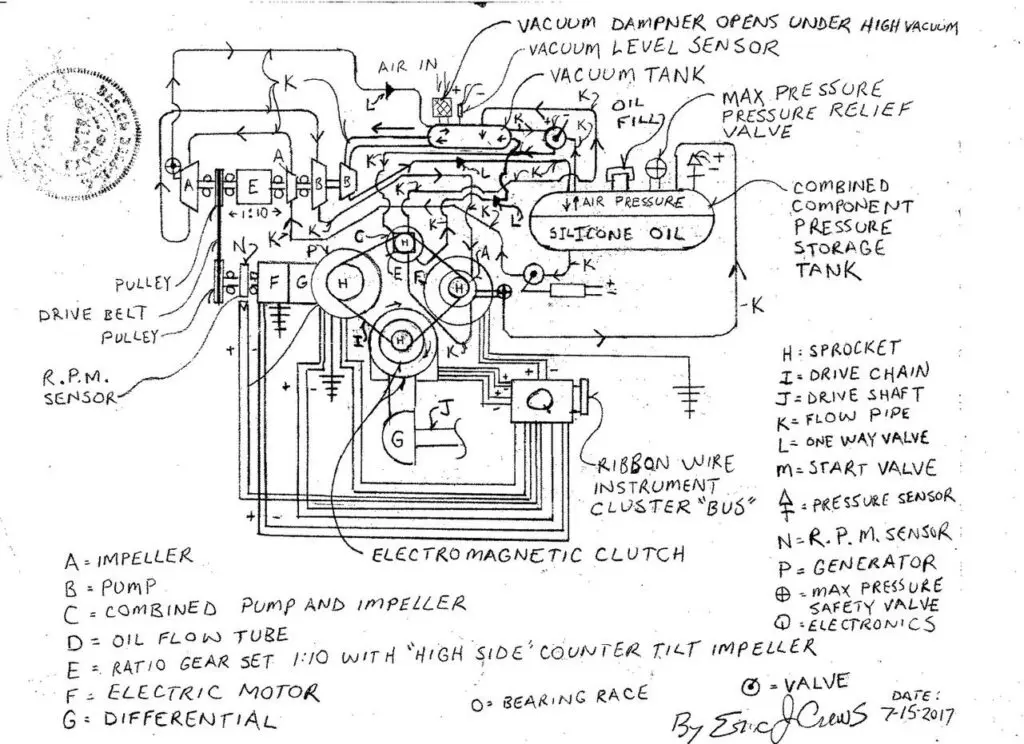 VACUUM DAMPNER OPENS UNDER HIGH VACUUM
VACUUM LEVEL SENSOR
VACUUM TANK
AIR IN
OIL
FILL
MAX PRESSURE
PRESSURE RELIEF
VALVE
COMBINED
COMPONENT
PRESSURE
STORAGE
TANK
AIR PRESSURE
SILICONE OIL
K
K
K
K
K
K
K
K
K
K
K
K
K
-K
L
L
L
A
E
A
B
B
1:10
N
P
C
H
E
F
A
F
G
H
H
H
I
K
J
G
Q
PULLEY
DRIVE BELT
PULLEY
R.P.M.
SENSOR
RIBBON WIRE
INSTRUMENT
CLUSTER "BUS"
ELECTROMAGNETIC CLUTCH
H: SPROCKET
I= DRIVE CHAIN
J= DRIVE SHAFT
K= FLOW PIPE
L= ONE WAY VALVE
M= START VALVE
= PRESSURE SENSOR
N= R.P.M. SENSOR
P= GENERATOR
= MAX PRESSURE
SAFETY VALVE
Q= ELECTRONICS
A= IMPELLER
B= PUMP
C= COMBINED PUMP AND IMPELLER
D= OIL FLOW TUBE
E= RATIO GEAR SET 1:10 WITH "HIGH SIDE" COUNTER TILT IMPELLER
F= ELECTRIC MOTOR
G= DIFFERENTIAL
O= BEARING RACE
= VALVE
DATE:
7-15-2017
By Eric J Crews